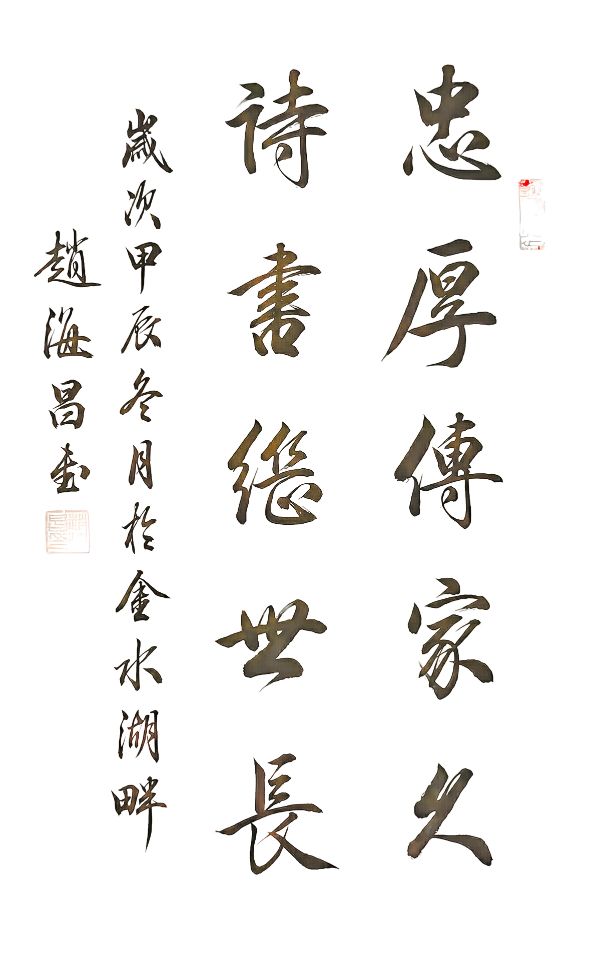 忠厚傳家久
詩書繼世長
歲次甲辰冬月於金水湖畔
趙海昌書